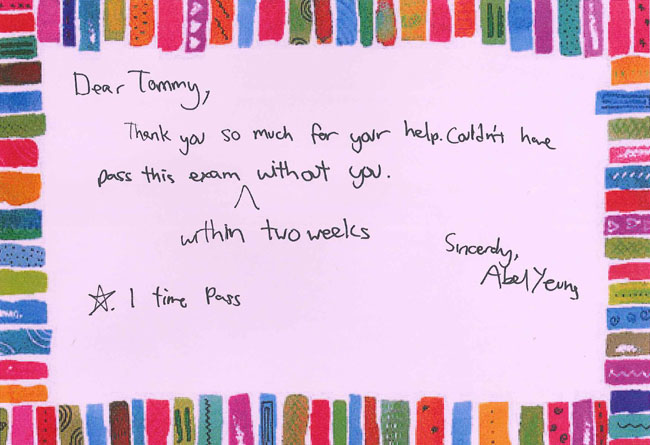 Dear Tommy,
Thank you so much for your help. Couldn't have
pass this exam without you.
within two weeks
Sincerely,
Abel Yeung
☆. 1 time Pass